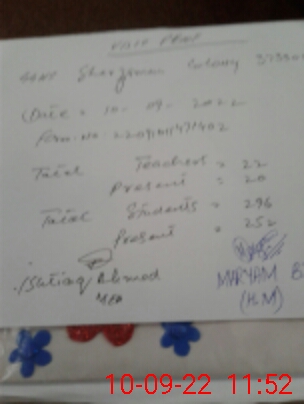 VISIT PRINT
Colony
Date = 10 - 09 - 2022
Total Teachers = 22
Present = 20
Total Students = 296
Present = 252
Ishtiaq Ahmad
MEA
MARYAM
(H.M)
10-09-22 11:52